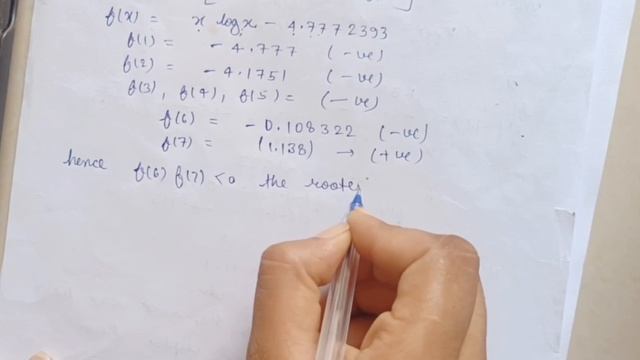 f(x) = x log x - 4.7772393
f(1) = - 4.777 (-ve)
f(2) = - 4.1751 (-ve)
f(3), f(4), f(5) = (-ve)
f(6) = - 0.108322 (-ve)
f(7) = (1.138) → (+ve)
hence f(6) f(7) < 0 the roots